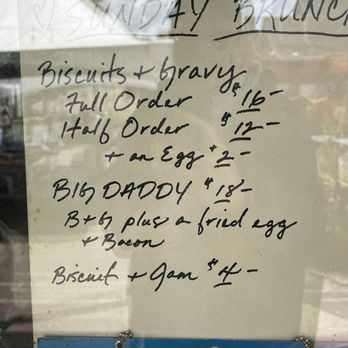 ♡ SUNDAY BRUNC
Biscuits + Gravy
Full Order $16-
Half Order $12-
+ an Egg +2-
BIG DADDY $18-
B+G plus a fried egg
+ Bacon
Biscuit + Jam $4-